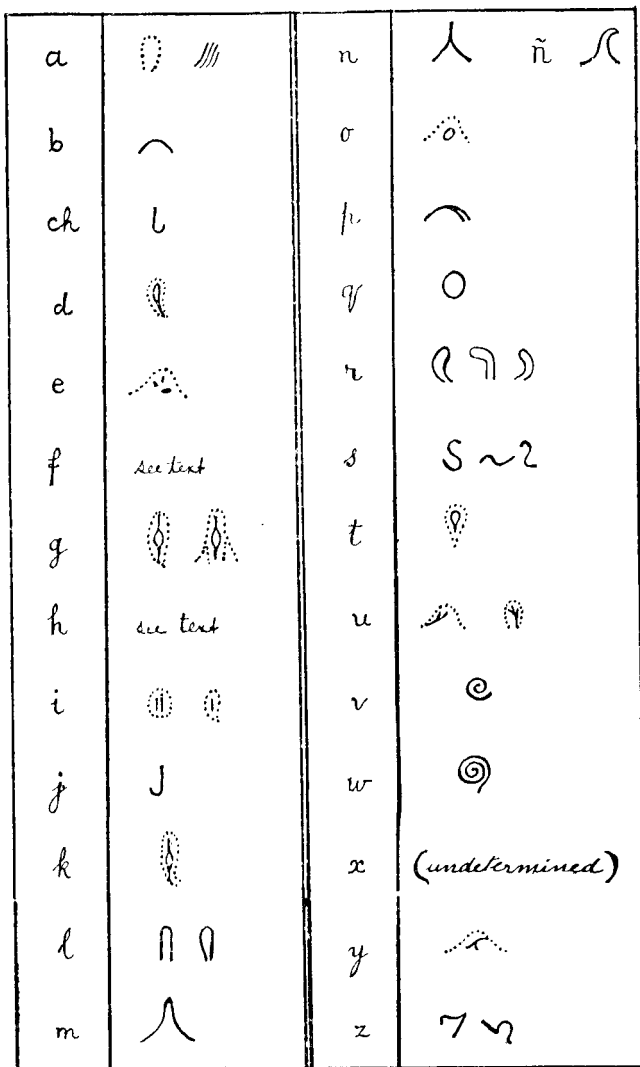 a
b
ch
d
e
f see text
g
h see text
i
j
k
l
m
n ñ
o
p
q
r
s
t
u
v
w
x (undetermined)
y
z